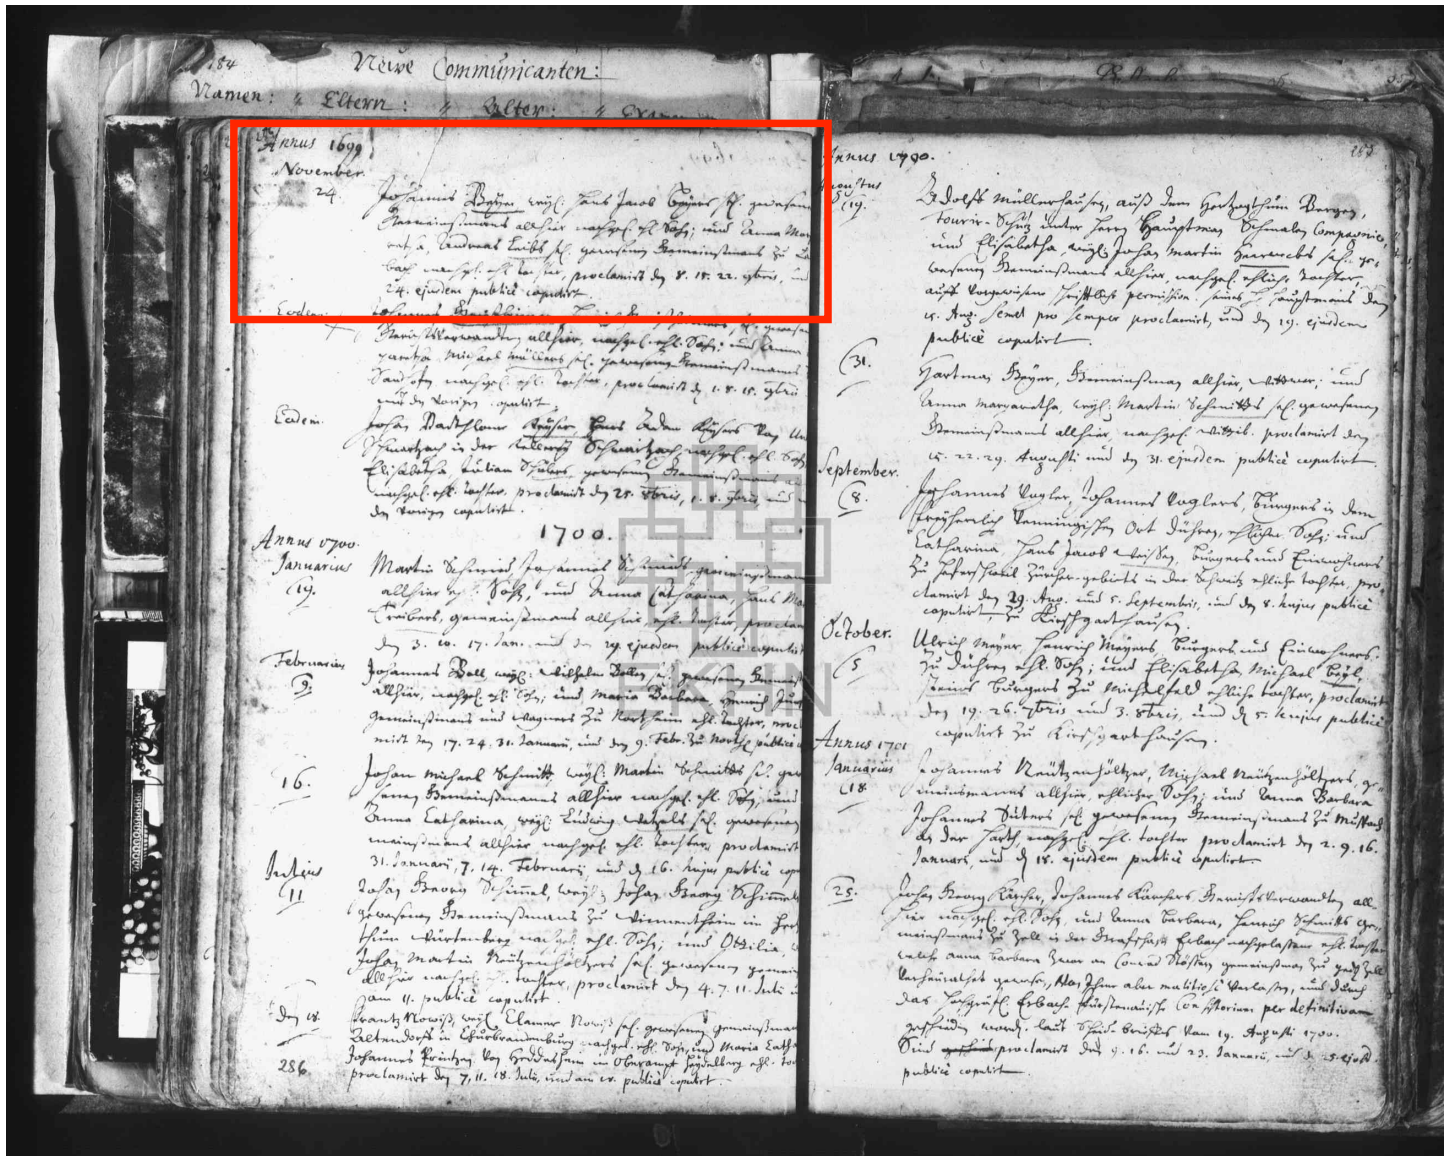 184 Neüe Communicanten:
Namen: " Eltern: " Alter: " Examen
Annus 1699
November.
24. Johannes Beyer, weyl. Hans Jacob Beyers sel. gewesenen
Gemeinßmans allhier nachgel. ehl. Sohn; und Anna Mar
Andreas Leibs sel. gewesenen Gemeinßmans zu
bach nachgel. ehl. tochter, proclamirt den 8. 15. 22. 9bris, und
24. ejusdem publicè copulirt.
Eodem Johannes
GerichtsVerwandten allhier, nachgel. ehl. Sohn; und Anna
Michael Müllers sel. gewesenen Gemeinßmanns
Sandhofen nachgel. ehl. Tochter, proclamirt d. 1. 8. 15. 9bris
und den copulirt.
Eodem. Johan Keyser, Hans Adam Keysers von
Schwartzach in der Kellerey Schwartzach nachgel. ehl. Sohn,
Elisabetha, gewesenen Gemeinßmans
nachgel. ehl. tochter, proclamirt den 25. 8bris, 1. 8. 9bris, und
den copulirt.
1700.
Annus 1700.
Januarius Martin Schmid, Johannes Schmids gemeinßmans
19. allhier ehl. Sohn, und Anna Catharina, Hans
gemeinßmans allhier, ehl. tochter, proclam
den 3. 10. 17. Jan. und den 19. ejusdem publicè copulirt
Februarius Johannes Boll, weyl. Wilhelm Bollen sel. gewesenen Gemeinß
9. allhier, nachgel. ehl. Sohn; und Maria Barbara, Henrich
gemeinßmans und Wagners zu Northeim ehl. tochter, procla
mirt den 17. 24. 31. Januarii, und den 9. Febr. zu Northeim publicè
16. Johan Michael Schmitt, weyl: Martin Schmitts sel. gewe
senen Gemeinßmanns allhier nachgel. ehl. Sohn; und
Anna Catharina, weyl: Ludwig Wetzels sel. gewesenen
meinßmans allhier nachgel. ehl. tochter, proclamirt
31. Januarij, 7. 14. Februarij, und d. 16. hujus publicè cop
Julius Johan Georg Schimmel, weyl: Johan Georg Schimmels
11 gewesenen Gemeinßmans zu im Hertzog
thum Würtenberg nachgel. ehl. Sohn; und Ottilia,
Johan Martin Neützenhöltzers sel. gewesenen gemeinß
allhier nachgel. ehl. tochter, proclamirt den 4. 7. 11. Juli
am 11. publicè copulirt.
den 18. Frantz weyl. sel. gewesenen gemeinßman
in Churbrandenburg nachgel. ehl. Sohn, und Maria Catha
Johannes Printzen von Heddesheim im Oberampt Heydelberg ehl. toch
286 proclamirt den 7. 11. 18. Juli, und am publicè copulirt.
EKHN
Annus 1700. 285
Augustus
19. Adolff Müllerhausen, auß dem Hertzogthum Bergen,
unter Herrn Hauptman Schmalen Compagnie,
und Elisabetha, weyl. Johan Martin sel. ge
wesenen Gemeinßmans allhier, nachgel. ehliche tochter,
auff Vorgewisene schrifftliche permission seines H. Hauptmans den
15. Aug. semel pro semper proclamirt, und den 19. ejusdem
publicè copulirt.
31. Hartman Beyer, Gemeinßman allhier, Wittwer; und
Anna Margaretha, weyl: Martin Schmitts sel. gewesenen
Gemeinßmanns allhier, nachgel. Wittib. proclamirt den
15. 22. 29. Augusti und den 31. ejusdem publicè copulirt.
September.
8. Johannes Vogler, Johannes Voglers, bürgers in dem
Freyherrlich Venningischen Ort Dühren, ehlicher Sohn; und
Catharina, Hans Jacob Weissen, bürgers und Einwohners
zu Zürcher gebiets in der Schweitz ehliche tochter, pro
clamirt den 29. Aug. und 5. Septembris, und den 8. hujus publicè
copulirt, zu Kirschgarthausen.
October. Ulrich Meyer, Henrich Meyers, bürgers und Einwohners
5 zu Dühren ehl. Sohn; und Elisabetha, Michael Beyl
steins bürgers zu Michelfeld ehliche tochter, proclamirt
den 19. 26. 7bris und 3. 8bris, und d. 5. hujus publicè
copulirt zu Kirschgarthausen.
Annus 1701
Januarius Johannes Neützenhöltzer, Michael Neützenhöltzers ge
18. meinsmannes allhier, ehlicher Sohn; und Anna Barbara
Johannes Süters sel. gewesenen Gemeinßmans zu Mußbach
an der Hardt, nachgel. ehl. tochter proclamirt den 2. 9. 16.
Januarii, und d. 18. ejusdem publicè copulirt.
25. Johan Georg Kärcher, Johannes Kärchers GerichtsVerwandten all
hier nachgel. ehl. Sohn, und Anna Barbara, Henrich Schmitts ge
meinßmans zu Zell in der Graffschafft Erbach nachgelassene ehl. tochter
welche Anna Barbara zuvor an Conrad gemeinßman zu Zell
Verheurathet gewesen, Von Ihme aber malitiosè Verlassen, und durch
das Hochgräfl. Erbach Fürstenauische Consistorium per definitivam
geschieden worden, laut Scheidbrieffs vom 19. Augusti 1700.
Sind proclamirt den 9. 16. und 23. Januarii, und d. 25. ejusd.
publicè copulirt.